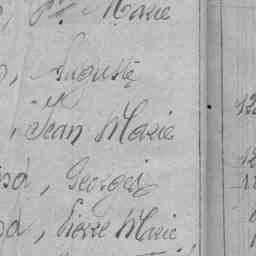 , Pre Marie
, Auguste
, Jean Marie
, Georges
, Pierre Marie